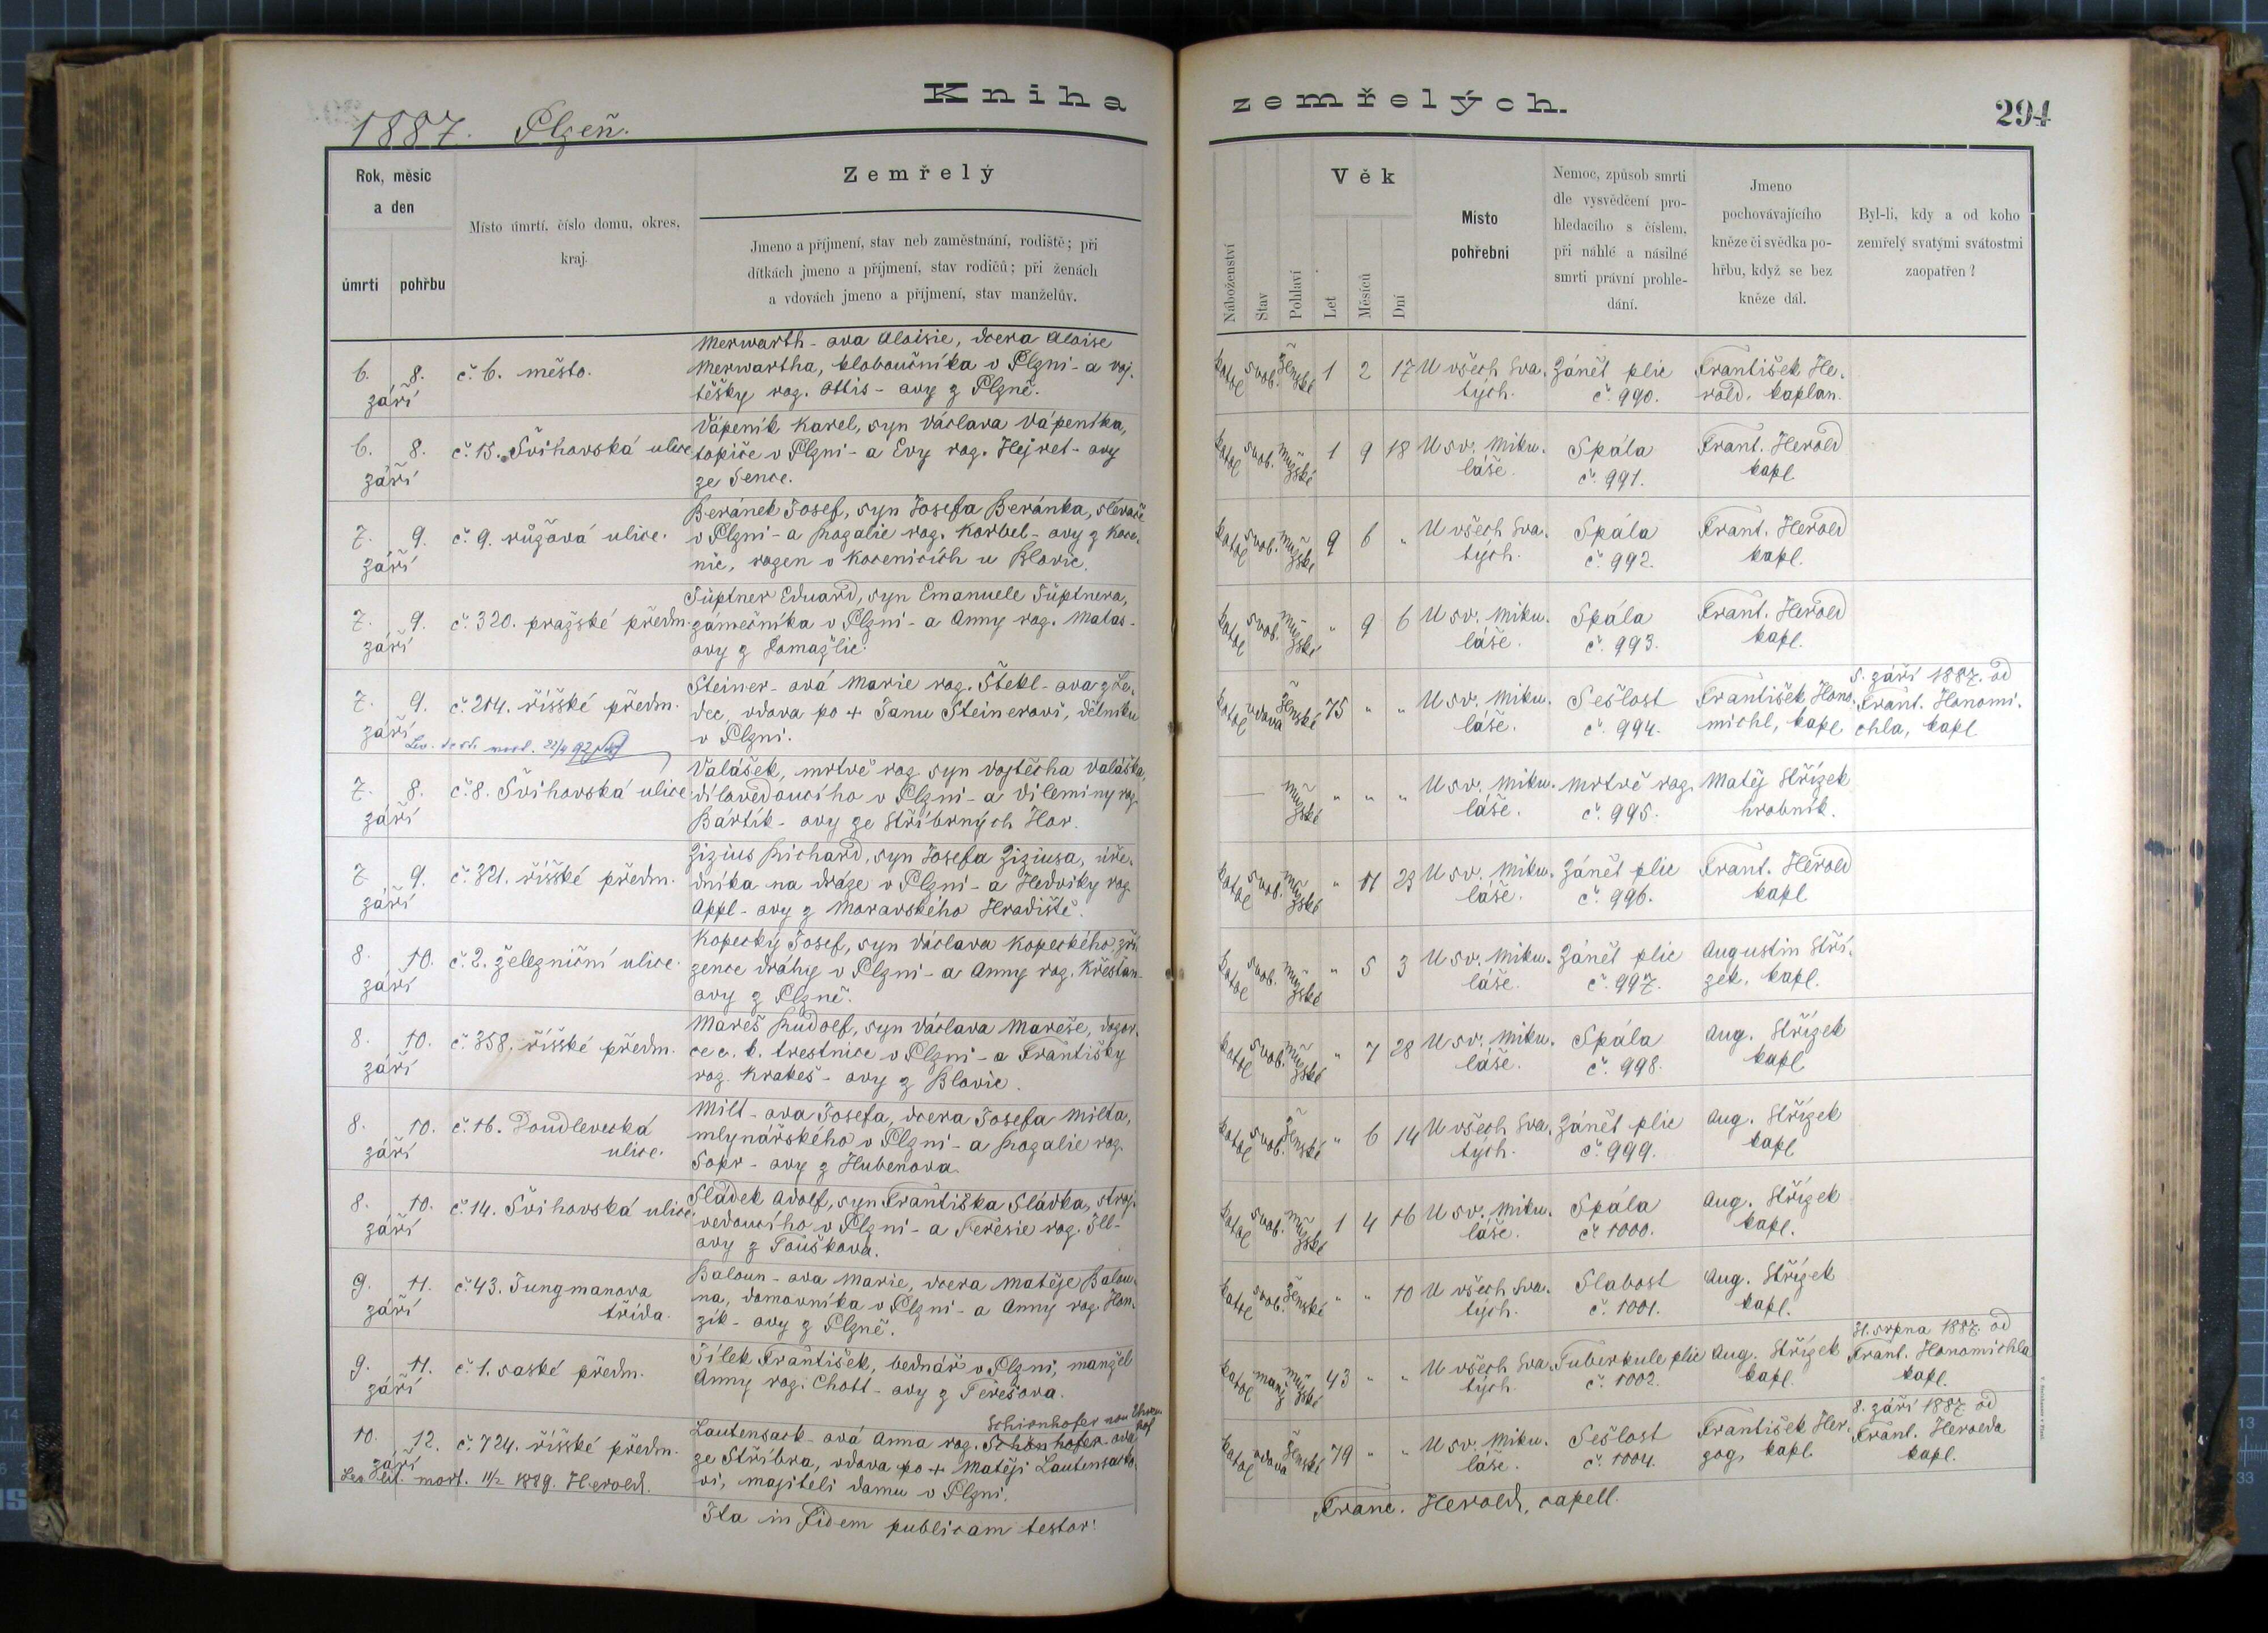 1887. Plzeň.
Kniha zemřelých.
294
Rok, měsíc
a den
úmrti
pohřbu
Místo úmrtí, číslo domu, okres,
kraj.
Zemřelý
Jmeno a příjmení, stav neb zaměstnání, rodiště; při
dítkách jmeno a příjmení, stav rodičů; při ženách
a vdovách jmeno a příjmení, stav manželův.
Náboženství
Stav
Pohlaví
Věk
Let
Měsíců
Dní
Místo
pohřební
Nemoc, způsob smrti
dle vysvědčení pro-
hledacího s číslem,
při náhlé a násilné
smrti právní prohle-
dání.
Jmeno
pochovávajícího
kněze či svědka po-
hřbu, když se bez
kněze dál.
Byl-li, kdy a od koho
zemřelý svatými svátostmi
zaopatřen?
6. 8.
září
č. 6. město.
Merwarth-ova Aloisie, dcera Aloise
Merwartha, kloboučníka v Plzni - a Voj-
těšky roz. Ottis-ovy z Plzně.
katol svob. ženské 1 2 17
U všech Sva-
tých.
Zánět plic
č. 990.
František He-
rold, kaplan.
6. 8.
září
č. 15. Švihovská ulice
Vápeník Karel, syn Václava Vápeníka,
topiče v Plzni - a Evy roz. Hejret-ovy
ze Sence.
katol svob. mužské 1 9 18
U sv. Miku-
láše.
Spála
č. 991.
Frant. Herold
kapl.
7. 9.
září
č. 9. růžová ulice.
Beránek Josef, syn Josefa Beránka, slévače
v Plzni - a Rozalie roz. Korbel-ovy z Koce-
nic, rozen v Kocenicích u Blovic.
katol svob. mužské 9 6 "
U všech Sva-
tých.
Spála
č. 992.
Frant. Herold
kapl.
7. 9.
září
č. 320. pražské předm.
Süptner Eduard, syn Emanuele Süptnera,
zámečníka v Plzni - a Anny roz. Matas-
ovy z Domažlic.
katol svob. mužské " 9 6
U sv. Miku-
láše.
Spála
č. 993.
Frant. Herold
kapl.
7. 9.
září
č. 214. říšské předm.
Steiner-ová Marie roz. Štekl-ova z Le-
dec, vdova po + Janu Steinerovi, dělníku
v Plzni.
katol vdova ženské 75 " "
U sv. Miku-
láše.
Sešlost
č. 994.
František Hono-
michl, kapl
5. září 1887. od
Frant. Honomi-
chla, kapl
7. 8.
září
č. 8. Švihovská ulice
Valášek, mrtvě roz syn Vojtěcha Valáška,
dílovedoucího v Plzni - a Vileminy roz.
Bartík-ovy ze Stříbrných Hor.
mužské " " "
U sv. Miku-
láše.
Mrtvě roz.
č. 995.
Matěj Střízek
hrobník.
7 9.
září
č. 321. říšské předm.
Zizius Richard, syn Josefa Ziziusa, úře-
dníka na dráze v Plzni - a Hedviky roz
Appl-ovy z Moravského Hradiště.
katol svob. mužské " 11 23
U sv. Miku-
láše.
Zánět plic
č. 996.
Frant. Herold
kapl
8. 10.
září
č. 2. železniční ulice.
Kopecký Josef, syn Václava Kopeckého, zří-
zence dráhy v Plzni - a Anny roz. Křesťan-
ovy z Plzně.
katol svob. mužské " 5 3
U sv. Miku-
láše.
Zánět plic
č. 997.
Augustin Stří-
zek, kapl.
8. 10.
září
č. 358. říšské předm.
Mareš Rudolf, syn Václava Mareše, dozor-
ce c. k. trestnice v Plzni - a Františky
roz. Krakeš-ovy z Blovic.
katol svob. mužské " 7 28
U sv. Miku-
láše.
Spála
č. 998.
Aug. Střízek
kapl
8. 10.
září
č. 16. Doudlevecká
ulice.
Milt-ova Josefa, dcera Josefa Milta,
mlynářského v Plzni - a Rozalie roz.
Sopr-ovy z Hubenova.
katol svob. ženské " 6 14
U všech Sva-
tých.
Zánět plic
č. 999.
Aug. Střízek
kapl
8. 10.
září
č. 14. Švihovská ulice
Sládek Adolf, syn Františka Sládka, stroj-
vedoucího v Plzni - a Teresie roz. Ill-
ovy z Touškova.
katol svob. mužské 1 4 16
U sv. Miku-
láše.
Spála
č. 1000.
Aug. Střízek
kapl.
9. 11.
září
č. 43. Jungmanova
třída.
Baloun-ova Marie, dcera Matěje Balou-
na, domovníka v Plzni - a Anny roz. Hon-
zík-ovy z Plzně.
katol svob. ženské " " 10
U všech Sva-
tých.
Slabost
č. 1001.
Aug. Střízek
kapl.
9. 11.
září
č. 1. saské předm.
Jílek František, bednář v Plzni, manžel
Anny roz. Chott-ovy z Terešova.
katol manž mužské 43 " "
U všech Sva-
tých.
Tuberkule plic
č. 1002.
Aug. Střízek
kapl.
31. srpna 1887. od
Frant. Honomichla
kapl.
10. 12.
září
č. 724. říšské předm.
Lautensack-ová Anna roz. Schönhofer-ova
Schionhofer von
ze Stříbra, vdova po + Matěji Lautensacko-
vi, majiteli domu v Plzni.
katol vdova ženské 79 " "
U sv. Miku-
láše.
Sešlost
č. 1004.
František Her-
zog, kapl
8. září 1887 od
Frant. Herolda
kapl.
mort. 11/2 1889. Herold.
Ita in fidem publicam testor:
Franc. Herold, capell.